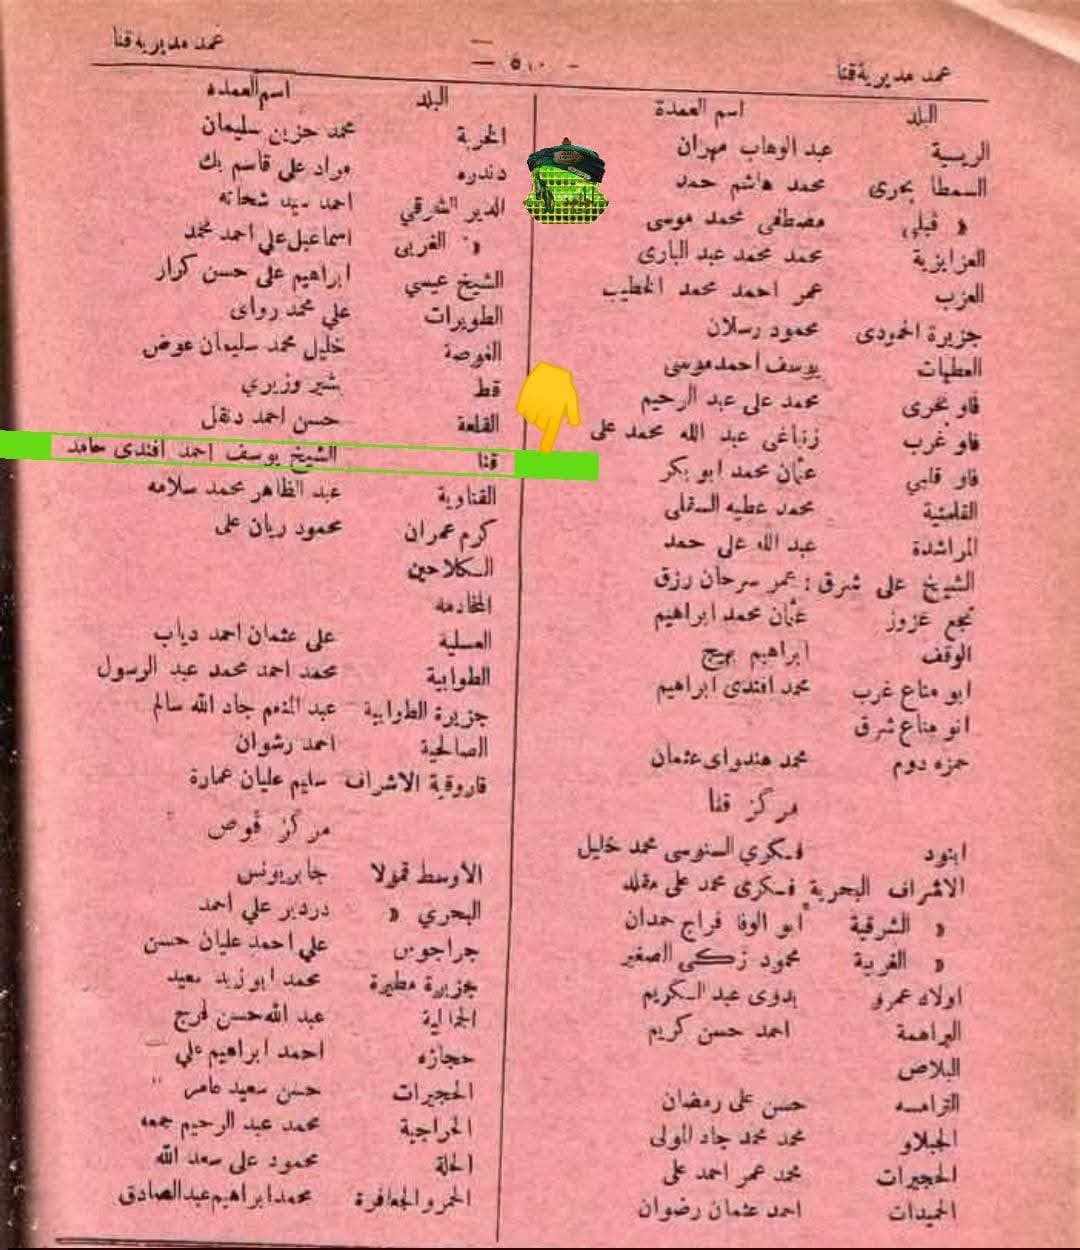 عمد مديرية قنا
— ٥٠٠ —
عمد مديرية قنا
البلد اسم العمدة
الريسية عبد الوهاب مهران
السمطا بحرى محمد هاشم حمد
« قبلى مصطفى محمد موسى
العزازية محمد محمد عبد البارى
العزب عمر احمد محمد الخطيب
جزيرة الحمودى محمود رسلان
العطيات يوسف احمد موسى
فاو بحرى محمد على عبد الرحيم
فاو غرب زناغى عبد الله محمد على
فاو قلبي عثمان محمد ابو بكر
القلمنية محمد عطيه السقلى
المراشدة عبد الله على حمد
الشيخ على شرق : عمر سرحان رزق
نجع عزوز عثمان محمد ابراهيم
الوقف ابراهيم بهيج
ابو مناع غرب محمد افندى ابراهيم
انو مناع شرق
حمزه دوم محمد هنداوى عثمان
مركز قنا
ابنود فكري السنوسى محمد خليل
الاشراف البحرية فكرى محمد على مقلد
« الشرقية ابو الوفا فراج حمدان
« الغربية محمود زكى الصغير
اولاد عمرو بدوى عبد الكريم
البراهمة احمد حسن كريم
البلاص
الترامسه حسن على رمضان
الجبلاو محمد محمد جاد المولى
الحجيرات محمد عمر احمد على
الحميدات احمد عثمان رضوان
البلد اسم العمده
الخربة محمد حزين سليمان
دندره مراد على قاسم بك
الدير الشرقي احمد سيد شحاته
« الغربى اسماعيل علي احمد محمد
الشيخ عيسي ابراهيم على حسن كرار
الطويرات علي محمد رواى
الغوصة خليل محمد سليمان عوض
قط بشير وزيري
القلعة حسن احمد دنقل
قنا الشيخ يوسف احمد افندى حامد
القناوية عبد الظاهر محمد سلامه
كرم عمران محمود ريان على
الكلاحين
المخادمه
العسلية على عثمان احمد دياب
الطوابية محمد احمد محمد عبد الرسول
جزيرة الطوابية عبد المنعم جاد الله سالم
الصالحية احمد رشوان
فاروقية الاشراف سليم عليان عمارة
مركز قوص
الأوسط قمولا جابر يونس
البحري « دردير علي احمد
جراجوس علي احمد عليان حسن
جزيرة مطيرة محمد ابو زيد سعيد
الجمالية عبد الله حسن فرج
حجازه احمد ابراهيم علي
الحجيرات حسن سعيد عامر
الحراجية محمد عبد الرحيم جمعه
الحلة محمود على سعد الله
الحمر والجعافرة محمد ابراهيم عبد الصادق